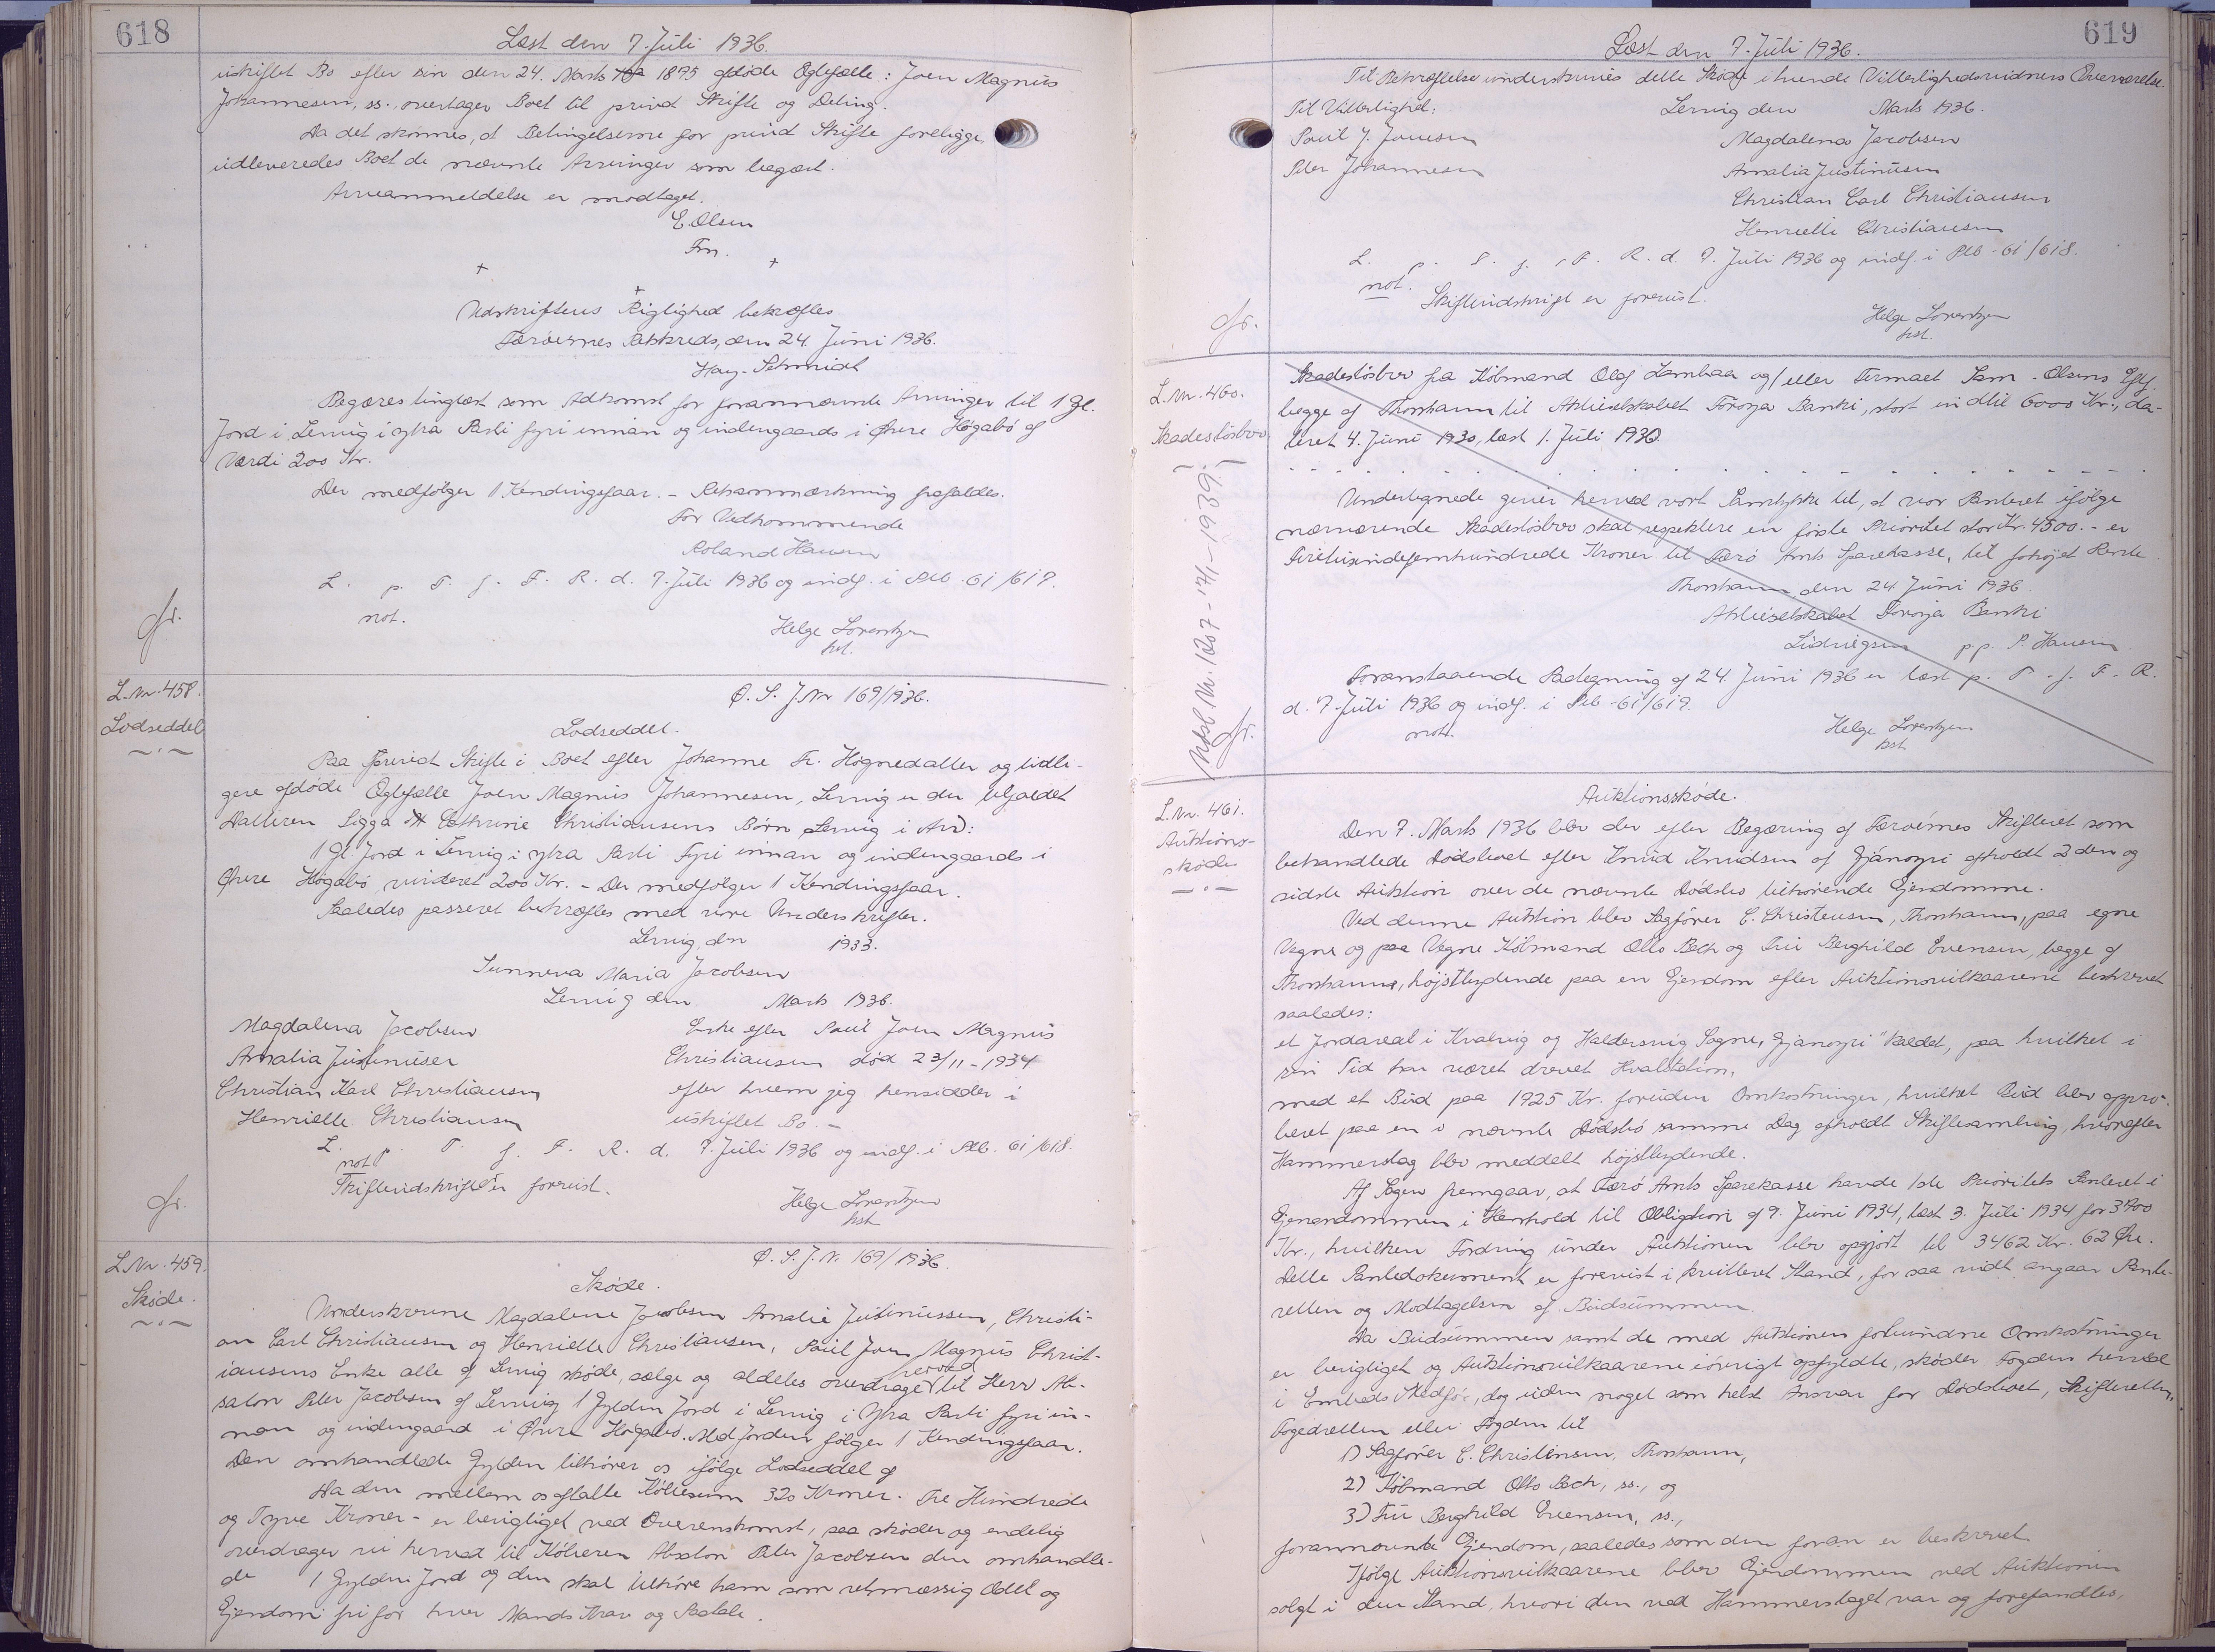 618
Læst den 7. Juli 1936.
uskiftet Bo efter sin den 24. Marts 1895 afdøde Ægtefælle: Joen Magnus
Johannesen, ss., overtager Boet til privat Skifte og Deling.
Da det skønnes, at Betingelserne for privat Skifte foreligge,
udleveredes Boet de nævnte Arvinger som begært.
Arveanmeldelse er modtaget.
E. Olsen
Fm.
Udskriftens Rigtighed bekræftes
Færøernes Retskreds, den 24. Juni 1936.
Hay-Schmidt
Begæres tinglæst som Adkomst for forannævnte Arvinger til 1 Gl.
Jord i Lervig i ytra Parti fyri innan og indengaards i Øvre Høgabö af
Værdi 200 Kr.
Der medfølger 1 Kendingsfaar. - Retsanmærkning frafaldes.
For Vedkommende
Roland Hansen
L. p. T. f. F. R. d. 7. Juli 1936 og indf. i Ptb. 61/617.
not.
Helge Lorentzen
kst.
L. Nr. 458.
Lodseddel
Ø. S. J. Nr 169/1936.
Lodseddel.
Paa privat Skifte i Boet efter Johanne Fr. Høgnedatter og tidli-
gere afdøde Ægtefælle Joen Magnus Johannesen, Lervig er der tilfaldet
Datteren Sigga Cathrine Christiansens Børn Lervig i Arv:
1 Gl. Jord i Lervig i ytra Parti Fyri innan og indengaards i
Øvre Høgabö, vurderet 200 Kr. - Der medfølger 1 Kendingsfaar.
Saaledes passeret bekræftes med vore Underskrifter.
Lervig, den 1933.
Sunneva Maria Jacobsen
Lervig den Marts 1936.
Magdalena Jacobsen Enke efter Poul Joen Magnus
Amalia Justinusen Christiansen død 23/11-1934
Christian Karl Christiansen efter hvem jeg hensidder i
Henriette Christiansen uskiftet Bo. -
L. p. T. f. F. R. d. 7. Juli 1936 og indf. i Ptb. 61/618.
not
Skifteudskrift er forevist.
Helge Lorentzen
kst.
L. Nr. 459.
Skøde.
Ø. S. J. Nr. 169/1936.
Skøde.
Underskrevne Magdalene Jacobsen Amalie Justinussen, Christi-
an Carl Christiansen og Henriette Christiansen, Poul Joen Magnus Christ-
iansens Enke alle af Lervig skøde, sælge og aldeles overdrage herved til Herr Ab-
salon Peter Jacobsen af Lervig 1 Gylden Jord i Lervig i Ytra Parti fyri in-
nan og indengaard i Øvre Høgabö. Med Jorden følger 1 Kendingsfaar.
Den omhandlede Gylden tilhører os ifølge Lodseddel af
Da den mellem os aftalte Købesum 320 Kroner. Tre Hundrede
og Tyve Kroner - er berigtiget ved Overenskomst, saa skøder og endelig
overdrager vi herved til Køberen Absalon Peter Jacobsen den omhandle-
de 1 Gylden Jord og den skal tilhøre ham som retsmæssig Odel og
Ejendom fri for hver Mands Krav og Paatale.
619
Læst den 7. Juli 1936.
Til Bekræftelse underskrives dette Skøde i tvende Vitterlighedsvidners Overværelse.
Til Vitterlighed: Lervig den Marts 1936.
Poul J. Joensen Magdalena Jacobsen
Peter Johannesen Amalia Justinusen
Christian Carl Christiansen
Henriette Christiansen
L. p. T. f. F. R. d. 7. Juli 1936 og indf. i Ptb. 61/618.
not.
Skifteudskrift er forevist.
Helge Lorentzen
kst.
L. Nr. 460.
Skadesløsbrev
Skadesløsbrev fra Købmand Olaf Lambaa og/eller Firmaet Sam. Olsens Eftf.
begge af Thorshavn til Aktieselskabet Føroya Banki, stort indtil 6000 Kr., da-
teret 4. Juni 1930, læst 1. Juli 1930
Undertegnede giver herved vort Samtykke til, at vor Panteret ifølge
nærværende Skadesløsbrev skal respektere en første Prioritet stor Kr. 4500. - er
Firetusindefemhundrede Kroner til Færø Amts Sparekasse, til forhøjet Rente.
Thorshavn, den 24 Juni 1936.
Aktieselskabet Føroya Banki
Ludvigsen pp. P. Hansen
Foranstaaende Paategning af 24. Juni 1936 er læst p. T. f. F. R.
d. 7. Juli 1936 og indf. i Ptb. 61/619.
not.
Helge Lorentzen
kst.
L. Nr. 461.
Auktions-
skøde
Auktionsskøde.
Den 7. Marts 1936 blev der efter Begæring af Færøernes Skifteret som
behandlede Dødsboet efter Knud Knudsen af Gjánoyri afholdt 2den og
sidste Auktion over de nævnte Dødsbo tilhørende Ejendomme.
Ved denne Auktion blev Sagfører C. Christensen, Thorshavn, paa egne
Vegne og paa Vegne Købmand Otto Bech og Fru Berghild Evensen, begge af
Thorshavn, højstbydende paa en Ejendom efter Auktionsvilkaarene beskrevet
saaledes:
et Jordareal i Kvalvig og Haldersvig Sogne, Gjánoyri" kaldet, paa hvilket i
sin Tid har været drevet Hvalstation,
med et Bud paa 1925 Kr. foruden Omkostninger, hvilket Bud blev appro-
beret paa en i nævnte Dødsbo samme Dag afholdt Skiftesamling, hvorefter
Hammerslag blev meddelt højstbydende.
Af Sagen fremgaar, at Færø Amts Sparekasse havde 1ste Prioritets Panteret i
Ejerendommen i Henhold til Obligation af 9. Juni 1934, læst 3. Juli 1934 for 3400
Kr., hvilken Fordring under Auktionen blev opgjort til 3462 Kr. 62 Øre.
Dette Pantedokument er forevist i kvitteret Stand, for saa vidt angaar Pante-
retten og Modtagelsen af Budsummen.
Da Budsummen samt de med Auktionen forbundne Omkostninger
er berigtiget og Auktionsvilkaarene iøvrigt opfyldte, skøder Fogden herved
i Embeds Medfør, dog uden noget som helst Ansvar for Dødsboet, Skifteretten,
Fogedretten eller Fogden til
1) Sagfører C. Christensen, Thorshavn,
2) Købmand Otto Bech, ss., og
3) Fru Berghild Evensen, ss.,
forannævnte Ejendom, saaledes som den foran er beskrevet
Ifølge Auktionsvilkaarene blev Ejendommen ved Auktionen
solgt i den Stand, hvori den ved Hammerslaget var og forefandtes,